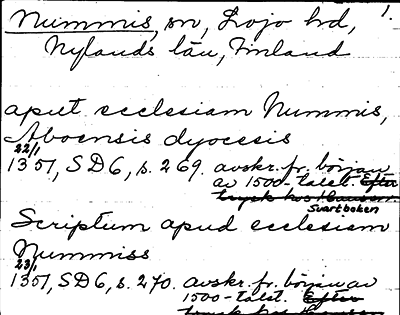 1.
Nummis, sn, Lojo hd,
Nylands län, Finland
aput ecclesiam Nummis,
Aboensis dyocesis
22/1
1351, SD6, s. 269. avskr. fr. början
av 1500-talet. Efter
tryck hos Hausen.
Svartboken
Scriptum apud ecclesiam
Nummiss
23/1
1351, SD6, s. 270. avskr. fr. början av
1500-talet. Efter
tryck hos Hausen